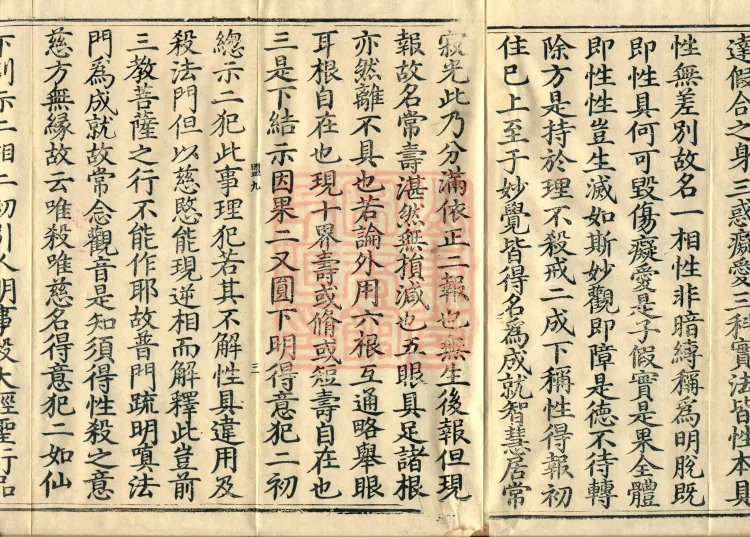 達假合之身三惑癡愛三種實法皆性本具
性無差別故名一相性非暗縛稱為明脫既
即性具何可毀傷癡愛是子假實是果全體
即性性豈生滅如斯妙觀即障是德不待轉
除方是持於理不殺戒二成下稱性得報初
住已上至于妙覺皆得名為成就智慧居常
寂光此乃分滿依正二報也無生後報但現
報故名常壽湛然無損減也五眼具足諸根
亦然離不具也若論外用六根互通略舉眼
耳根自在也現十界壽或脩或短壽自在也
三是下結示因果二又圓下明得意犯二初
㽞九
三
總示二犯此事理犯若其不解性具違用及
殺法門但以慈愍能現逆相而解釋此豈前
三教菩薩之行不能作耶故普門疏明嗔法
門為成就故常念觀音是知須得性殺之意
慈方無緣故云唯殺唯慈名得意犯二如仙
下別示二相二初引人明事殺大經聖行品